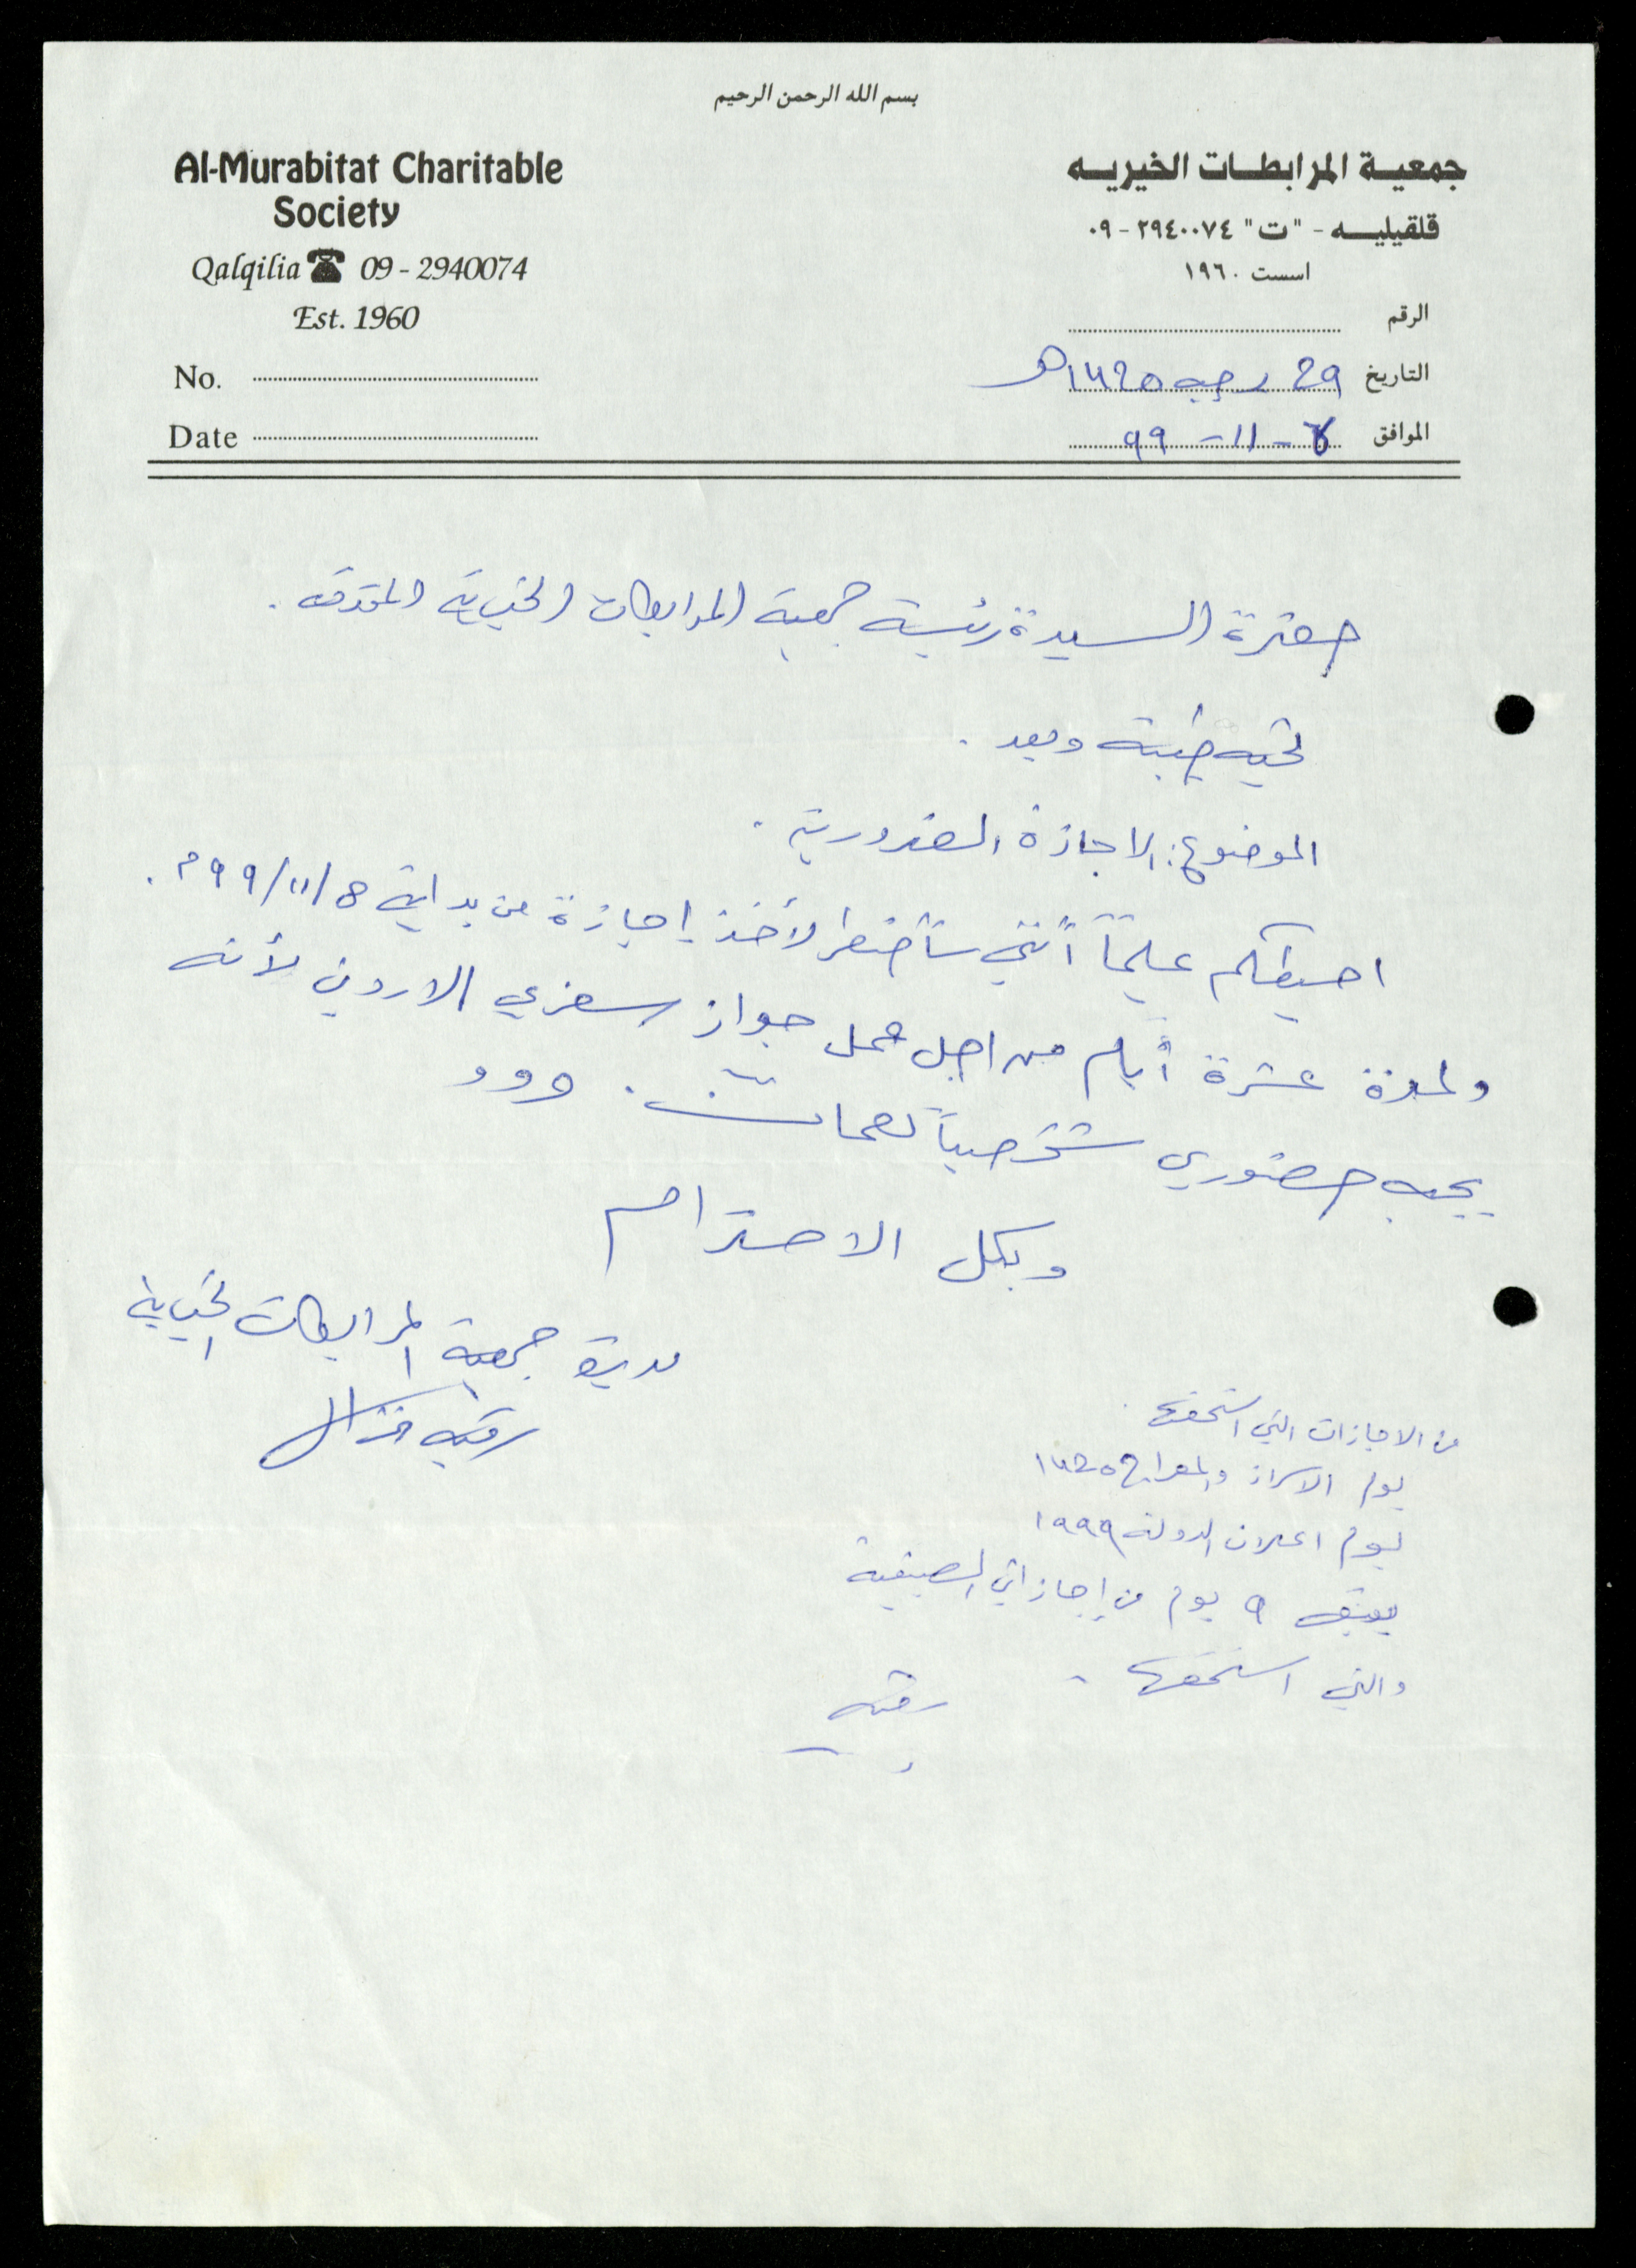 بسم الله الرحمن الرحيم
جمعية المرابطات الخيريه
قلقيليه - "ت" ٢٩٤٠٠٧٤ - ٠٩
اسست ١٩٦٠
Al-Murabitat Charitable
Society
Qalqilia ☎ 09 - 2940074
Est. 1960
No.
Date
الرقم
التاريخ 29 رجب ١٤٢٥هـ
الموافق - ١١ - ٩٩
حضرة السيدة رئيسة جمعية المرابطات الخيرية المحترمه .
تحيه طيبة وبعد .
الموضوع : الاجازة الضرورية .
احيطكم علماً أنني سأضطر لأخذ إجازة من بداية ٨/١١/٩٩م .
ولمدة عشرة أيام من اجل عمل جواز سفري الاردني لأنه
يجب حضوري شخصياً لعمان .
وبكل الاحترام
مديرة جمعية المرابطات الخيرية
رقيه نزال
من الاجازات التي استحقها .
يوم الاسراء والمعراج
يوم اعلان الدولة ١٩٩٩
يتبقى ٩ يوم من إجازاتي الصيفية
والتي استحقها .
رقيه